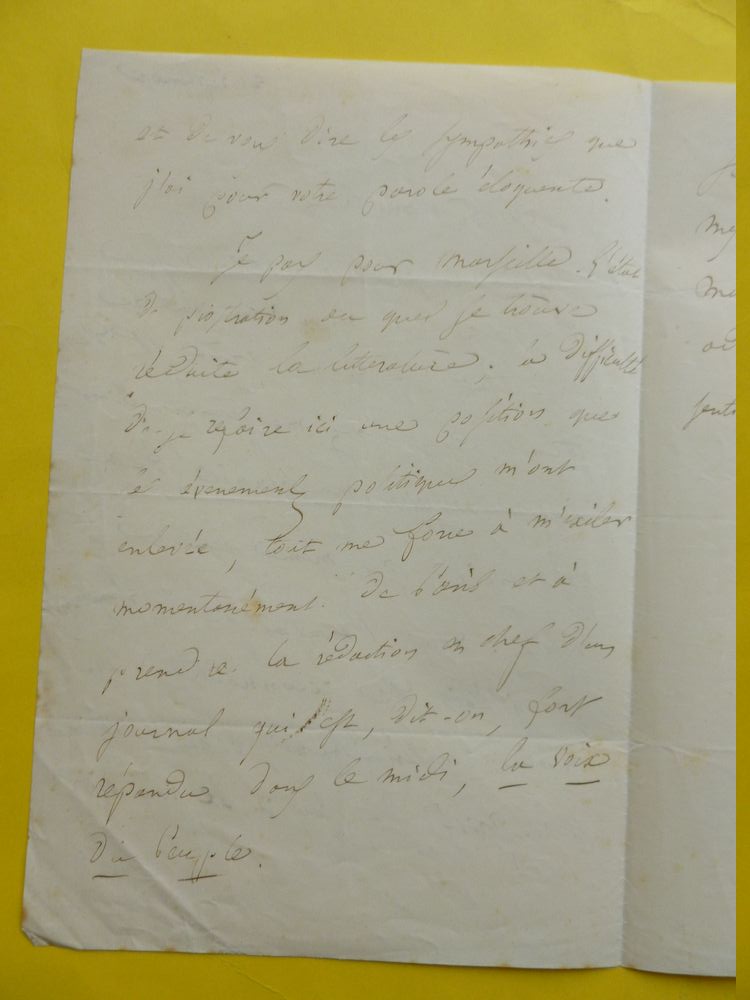 et de vous dire les sympathies que
j'ai pour votre parole éloquente.
Je pars pour Marseille. L'état
de prostration au quel je trouve
réduite la littérature, la difficulté
de refaire ici une position que
les évenements politiques m'ont
enlevée, tout me force à m'exiler
momentanément de Paris et à
prendre la rédaction en chef d'un
journal qui est, dit-on, fort
répandu dans le midi, la voix
du Peuple.